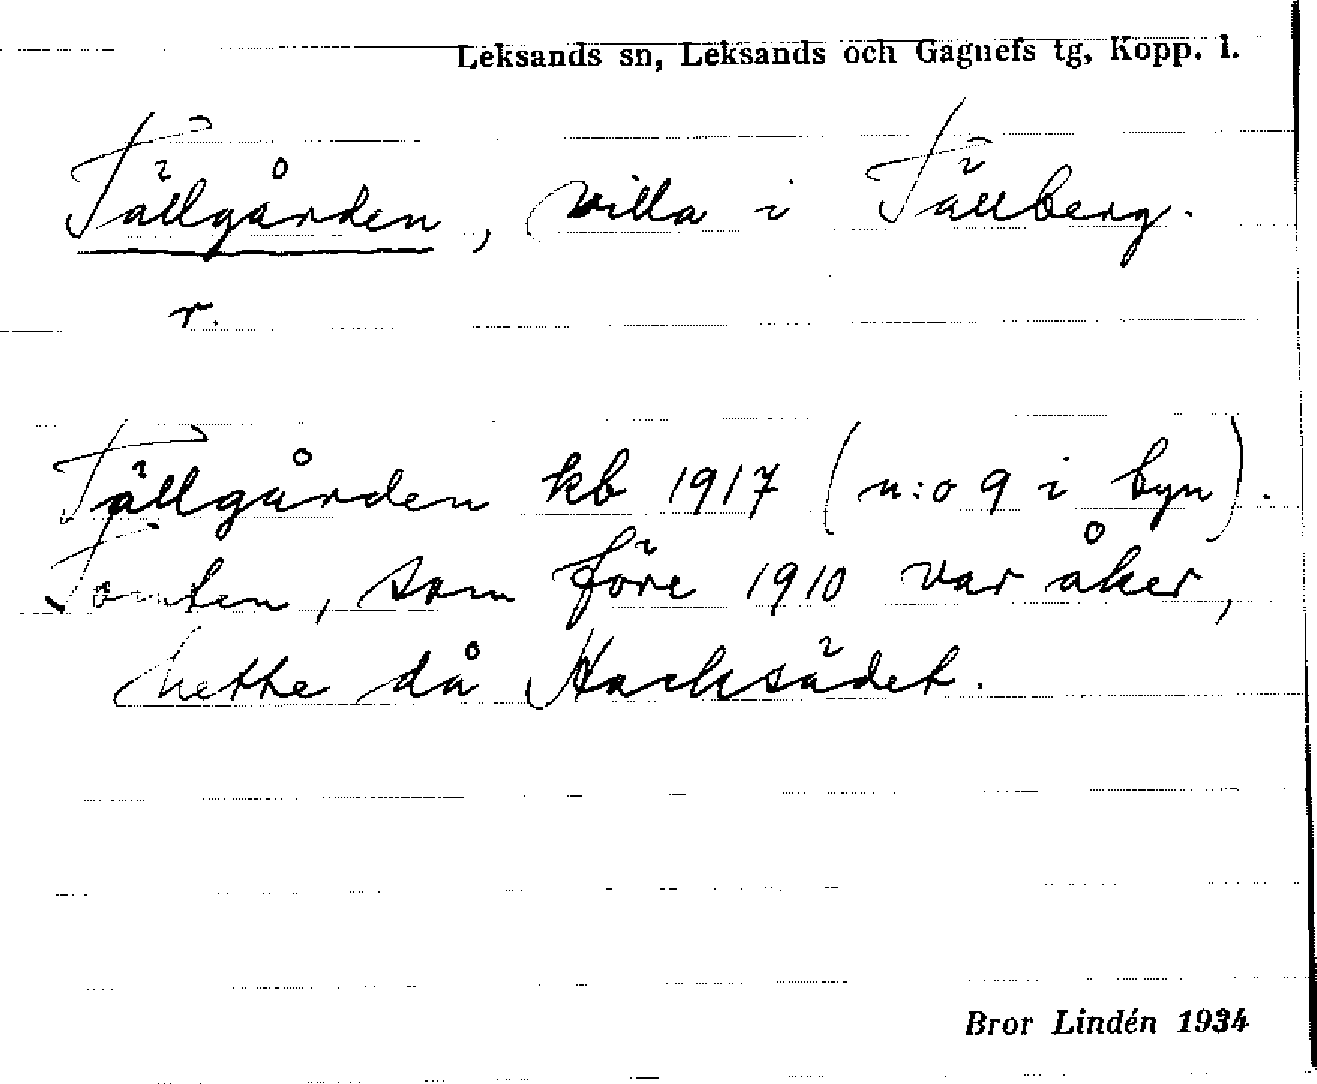 Leksands sn, Leksands och Gagnefs tg, Kopp. l.
Tällgården, villa i Tällberg.
r.
Tällgården kb 1917 (n:o 9 i byn).
Tomten, som före 1910 var åker,
hette då Hacksädet.
Bror Lindén 1934